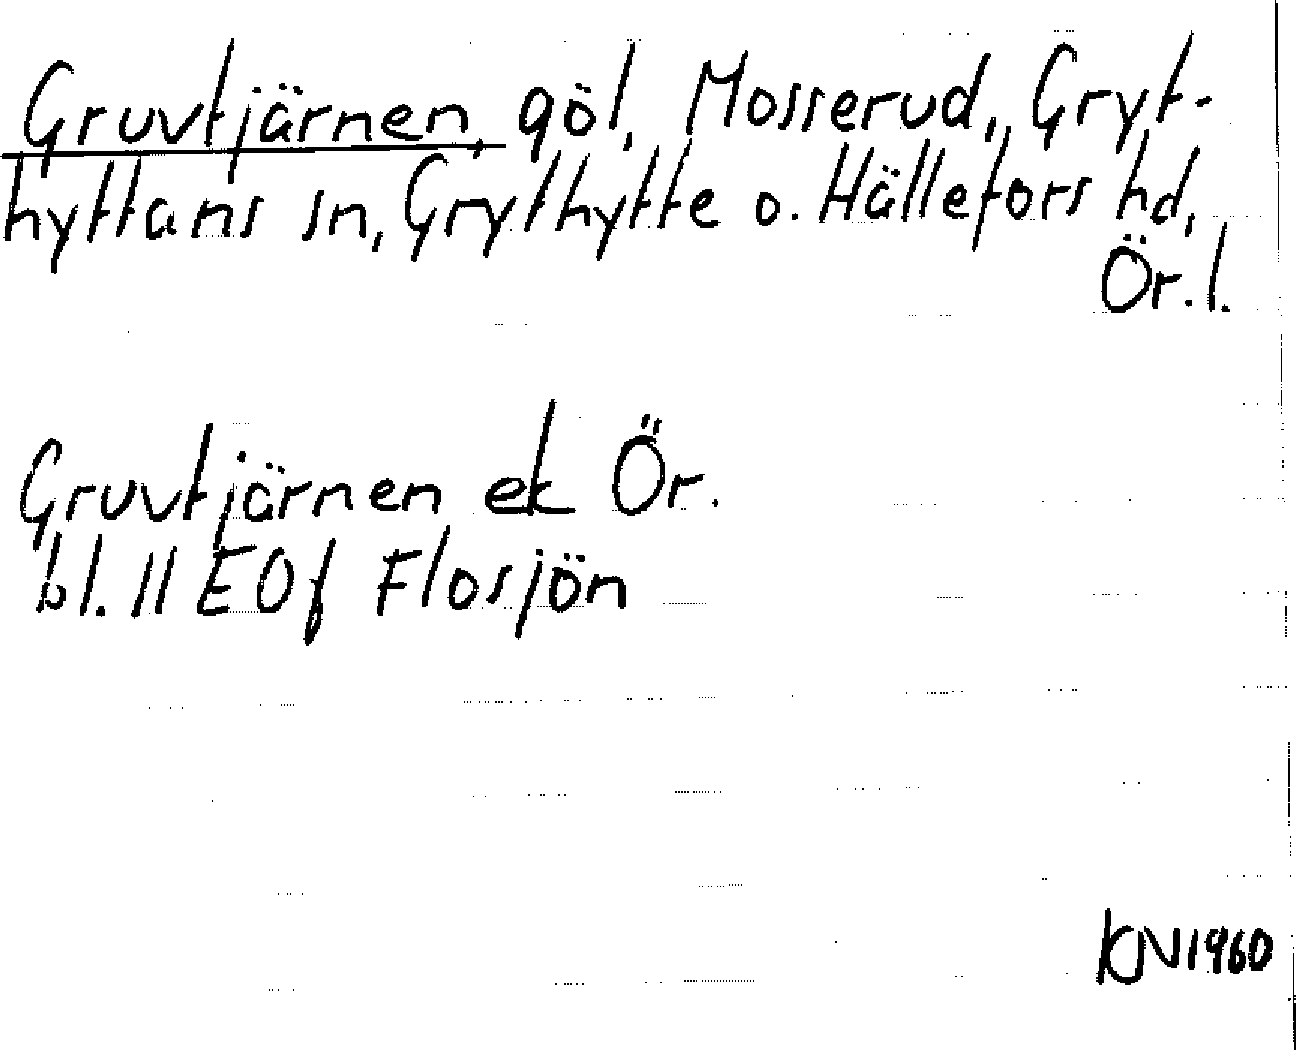 Gruvtjärnen, göl, Mosserud, Gryt-
hyttans sn, Grythytte o. Hällefors hd,
Ör. l.
Gruvtjärnen ek Ör.
bl. 11 EOf Flosjön
KN 1960